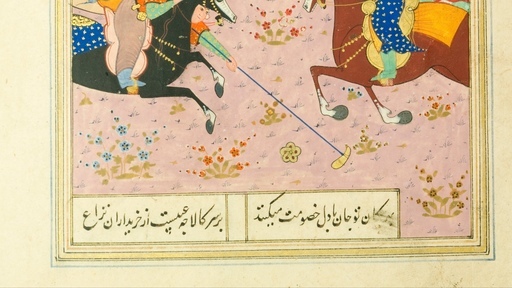 پیکان تو جان با دل خصومت میکند
بر سر کالا چه عیبست از خریداران نزاع